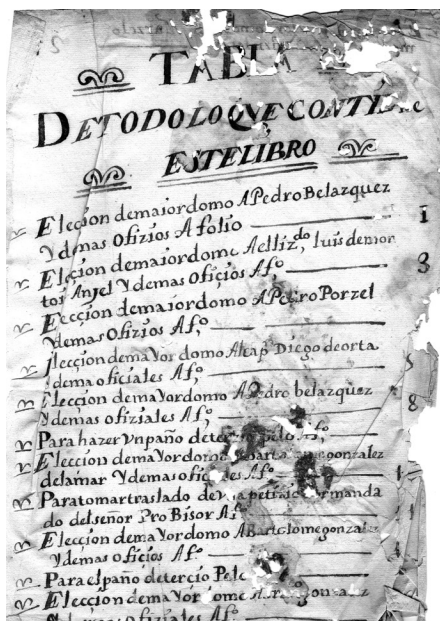 TABLA
DETODOLO QVE CONTIENE
ESTELIBRO
Elecion demaiordomo A Pedro Belazquez
Y demas Ofizios A folio ī
Elecion demaiordomo Aelliz.do luis demon
tos Anjel Y demas Ofiçios Af.o 3
Eecçion demaiordomo A Pedro Porzel
Ydemas Ofizios Af.o
Elecçion demaYordomo Alcap.n Diego deorta
Ydema oficiales Af.o 5
Eleccion demaYordomo A Pedro belazquez
Ydemas ofiziales Af.o 8
Para hazer Vn paño de Af.o
Eleccion demaYordomo gonzalez
delamar Y demas Af.o
Para tomar traslado de
do del señor ProBisor Af.o
Eleccion demaYordomo A Bartolome gonzalez
Y demas oficios Af.o
Para el paño deterçio Pelo
Elecçion demaYordome gonzalez
Y demas ofiziales Af.o